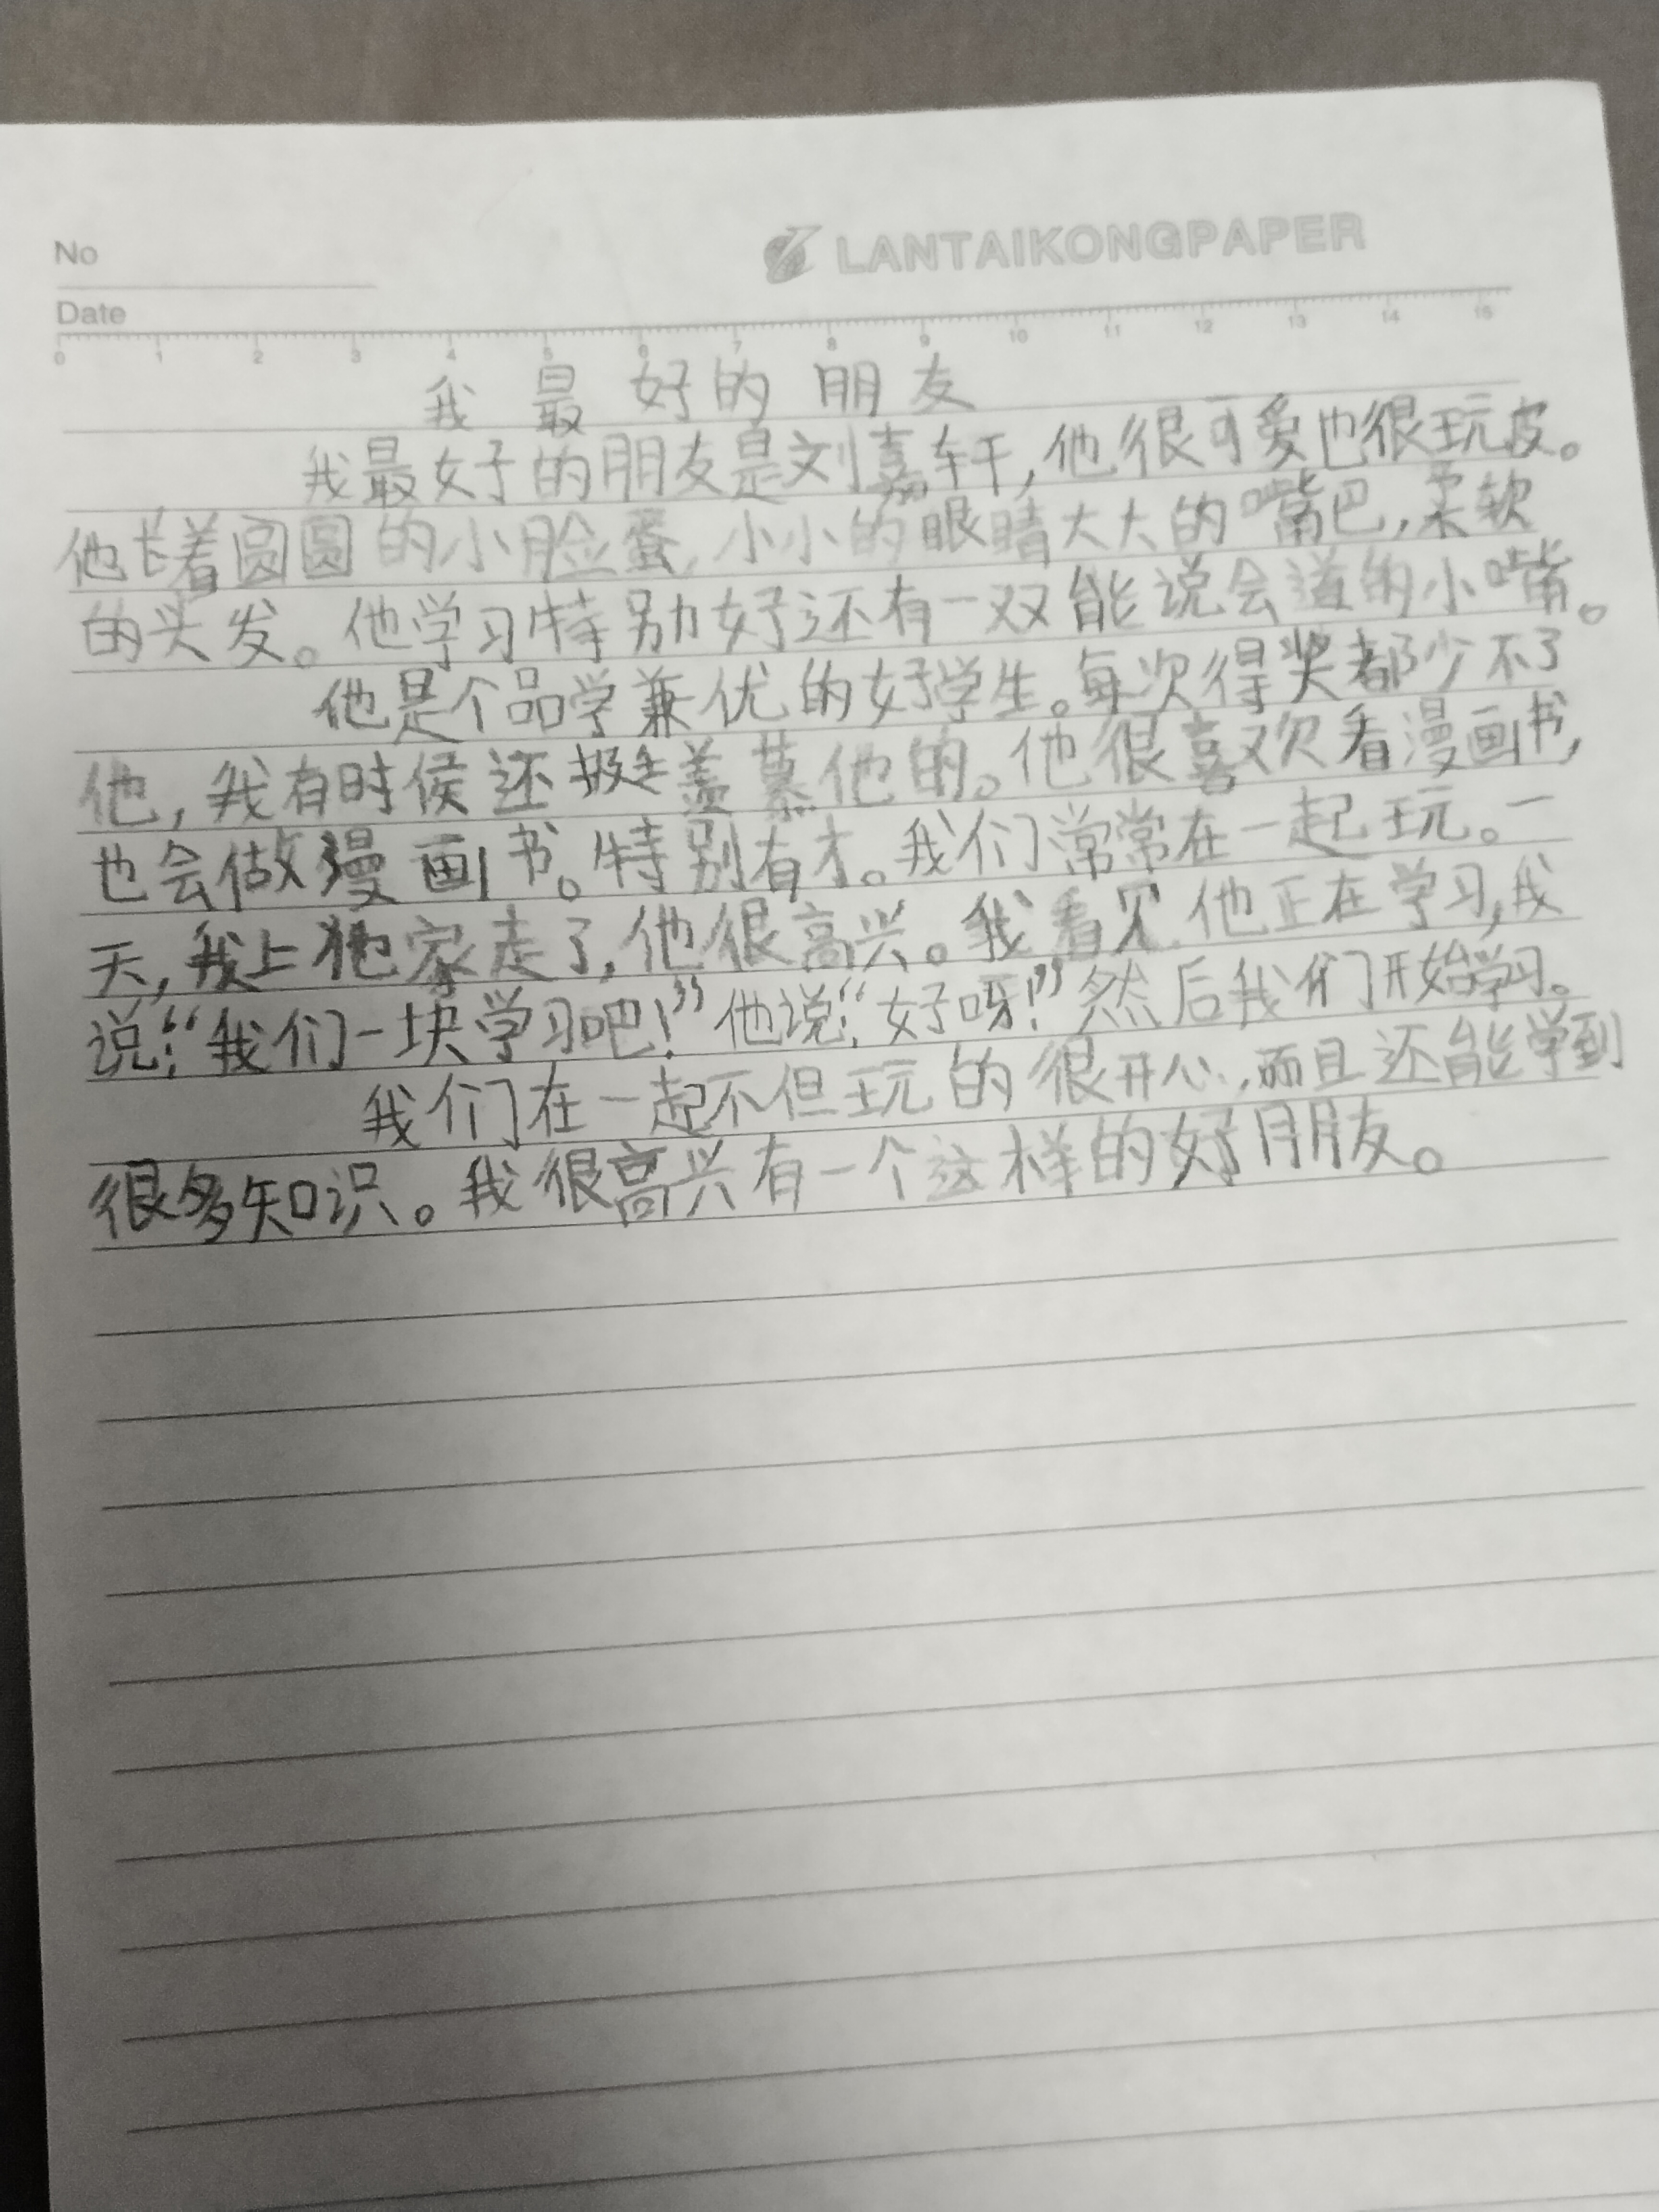 No
LANTAIKONGPAPER
Date
0 1 2 3 4 5 6 7 8 9 10 11 12 13 14 15
我最好的朋友
我最好的朋友是刘嘉轩,他很可爱也很玩皮。
他长着圆圆的小脸蛋,小小的眼睛大大的嘴巴,柔软
的头发。他学习特别好还有一双能说会道的小嘴。
他是个品学兼优的好学生。每次得奖都少不了
他,我有时候还挺羡慕他的。他很喜欢看漫画书,
也会做漫画书。特别有才。我们常常在一起玩。一
天,我上他家走了,他很高兴。我看见他正在学习,我
说:“我们一块学习吧!”他说:“好呀!”然后我们开始学习。
我们在一起不但玩的很开心,而且还能学到
很多知识。我很高兴有一个这样的好朋友。